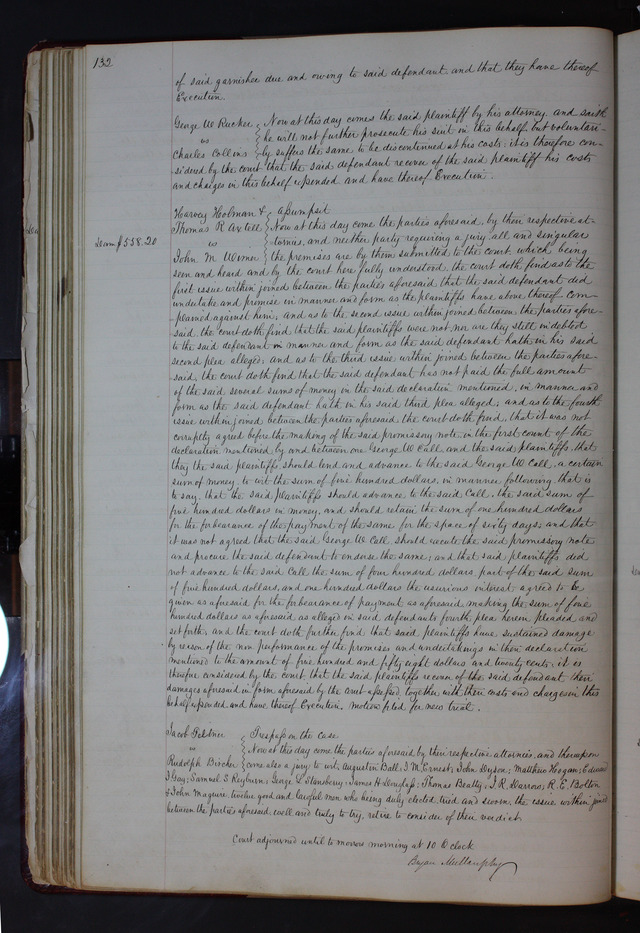 132
of said garnishee due and owing to said defendant and that they have thereof
Execution.
George W Rucker
vs
Charles Collins
Now at this day comes the said plaintiff by his attorney and saith
he will not further prosecute his suit in this behalf but voluntari-
ly suffers the same to be discontinued at his costs; it is therefore con-
sidered by the court that the said defendant recover of the said plaintiff his costs
and charges in this behalf expended and have thereof Execution.
Dam $558.20
Harvey Holman &
Thomas R Axtell
vs
John M Wimer
Assumpsit
Now at this day come the parties aforesaid, by their respective at-
tornies, and neither party requiring a jury, all and singular
the premises are by them submitted to the court, which being
seen and heard and by the court here fully understood, the court doth find as to the
first issue within joined between the parties aforesaid, that the said defendant did
undertake and promise in manner and form as the plaintiffs have above thereof com-
plained against him; and as to the second issue within joined between, the parties afore-
said, the court doth find that the said plaintiffs were not nor are they still indebted
to the said defendant in manner and form as the said defendant hath in his said
second plea alleged; and as to the third issue within joined between the parties afore-
said, the court doth find that the said defendant has not paid the full amount
of the said several sums of money in the said declaration mentioned, in manner and
form as the said defendant hath in his said third plea alleged; and as to the fourth
issue within joined between the parties aforesaid, the court doth find, that it was not
corruptly agreed before the making of the said promissory note in the first count of the
declaration mentioned, by and between one George W Call and the said plaintiffs, that
they the said plaintiffs should lend and advance to the said George W Call, a certain
sum of money, to wit the sum of five hundred dollars, in manner following, that is
to say, that the said plaintiffs should advance to the said Call, the said sum of
five hundred dollars in money, and should retain the sum of one hundred dollars
for the forbearance of the payment of the same for the space of sixty days; and that
it was not agreed that the said George W Call should execute the said promissory note
and procure the said defendant to endorse the same; and that said plaintiffs did
not advance to the said Call the sum of four hundred dollars part of the said sum
of five hundred dollars, and one hundred dollars the usurious interest agreed to be
given as aforesaid for the forbearance of payment as aforesaid making the sum of five
hundred dollars as aforesaid, as alleged in said defendants fourth plea herein pleaded and
set forth; and the court doth further find that said plaintiffs have sustained damage
by reason of the non performance of the promises and undertakings in their declaration
mentioned to the amount of five hundred and fifty eight dollars and twenty cents; it is
therefore considered by the court, that the said plaintiffs recover of the said defendant their
damages aforesaid in form aforesaid by the court assessed, together with their costs and charges in this
behalf expended and have thereof Execution. Motion filed for new trial.
Jacob
vs
Rudolph Bircher
Trespass on the case
Now at this day come the parties aforesaid by their respective attornies, and thereupon
come also a jury, to wit, Augustin Ball; J. M. Ernest; John Dyson; Matthew Hogan; Edward
J Gay; Samuel S Reyburn; George L Stansberry; James H Douglass; Thomas Beatty; J. R. Darrow; R. E. Bolton
& John Maguire, twelve good and lawful men who being duly elected tried and sworn, the issue within joined
between the parties aforesaid, well and truly to try, retire to consider of their verdict
Court adjourned until to morrow morning at 10 O clock
Bryan Mullanphy